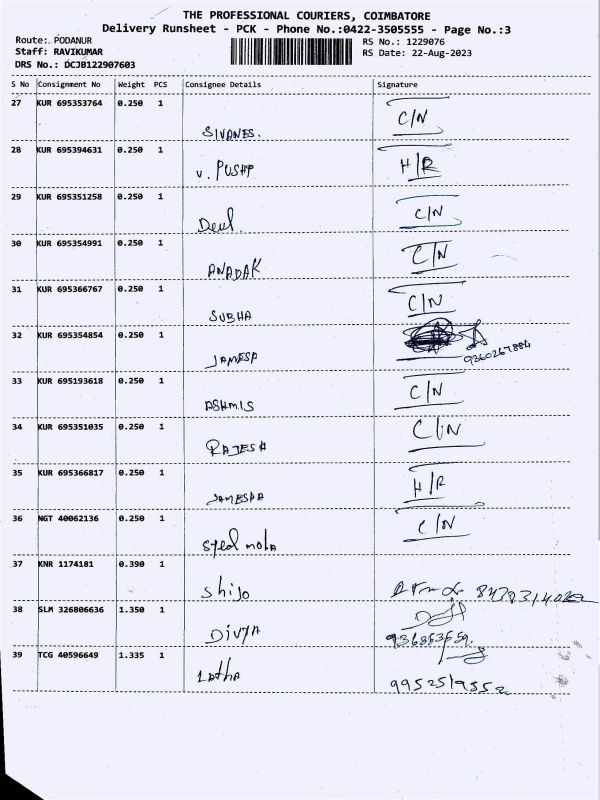 THE PROFESSIONAL COURIERS, COIMBATORE
Delivery Runsheet - PCK - Phone No.:0422-3505555 - Page No.:3
Route: PODANUR
Staff: RAVIKUMAR
DRS No.: DCJB122907603
RS No.: 1229076
RS Date: 22-Aug-2023
S No Consignment No Weight PCS Consignee Details Signature
27 KUR 695353764 0.250 1 SIVANES. C/N
28 KUR 695394631 0.250 1 V. PUSHP H/R
29 KUR 695351258 0.250 1 C/N
30 KUR 695354991 0.250 1 ANADAK C/N
31 KUR 695366767 0.250 1 SUBHA C/N
32 KUR 695354854 0.250 1 JAMESP
33 KUR 695193618 0.250 1 ASHMIS C/N
34 KUR 695351035 0.250 1 RAJESH C/N
35 KUR 695366817 0.250 1 JAMESPA H/R
36 NGT 40062136 0.250 1 Syed moha C/N
37 KNR 1174181 0.390 1 Shijo
38 SLM 326806636 1.350 1 DIVYA
39 TCG 40596649 1.335 1 Latha 9952519552